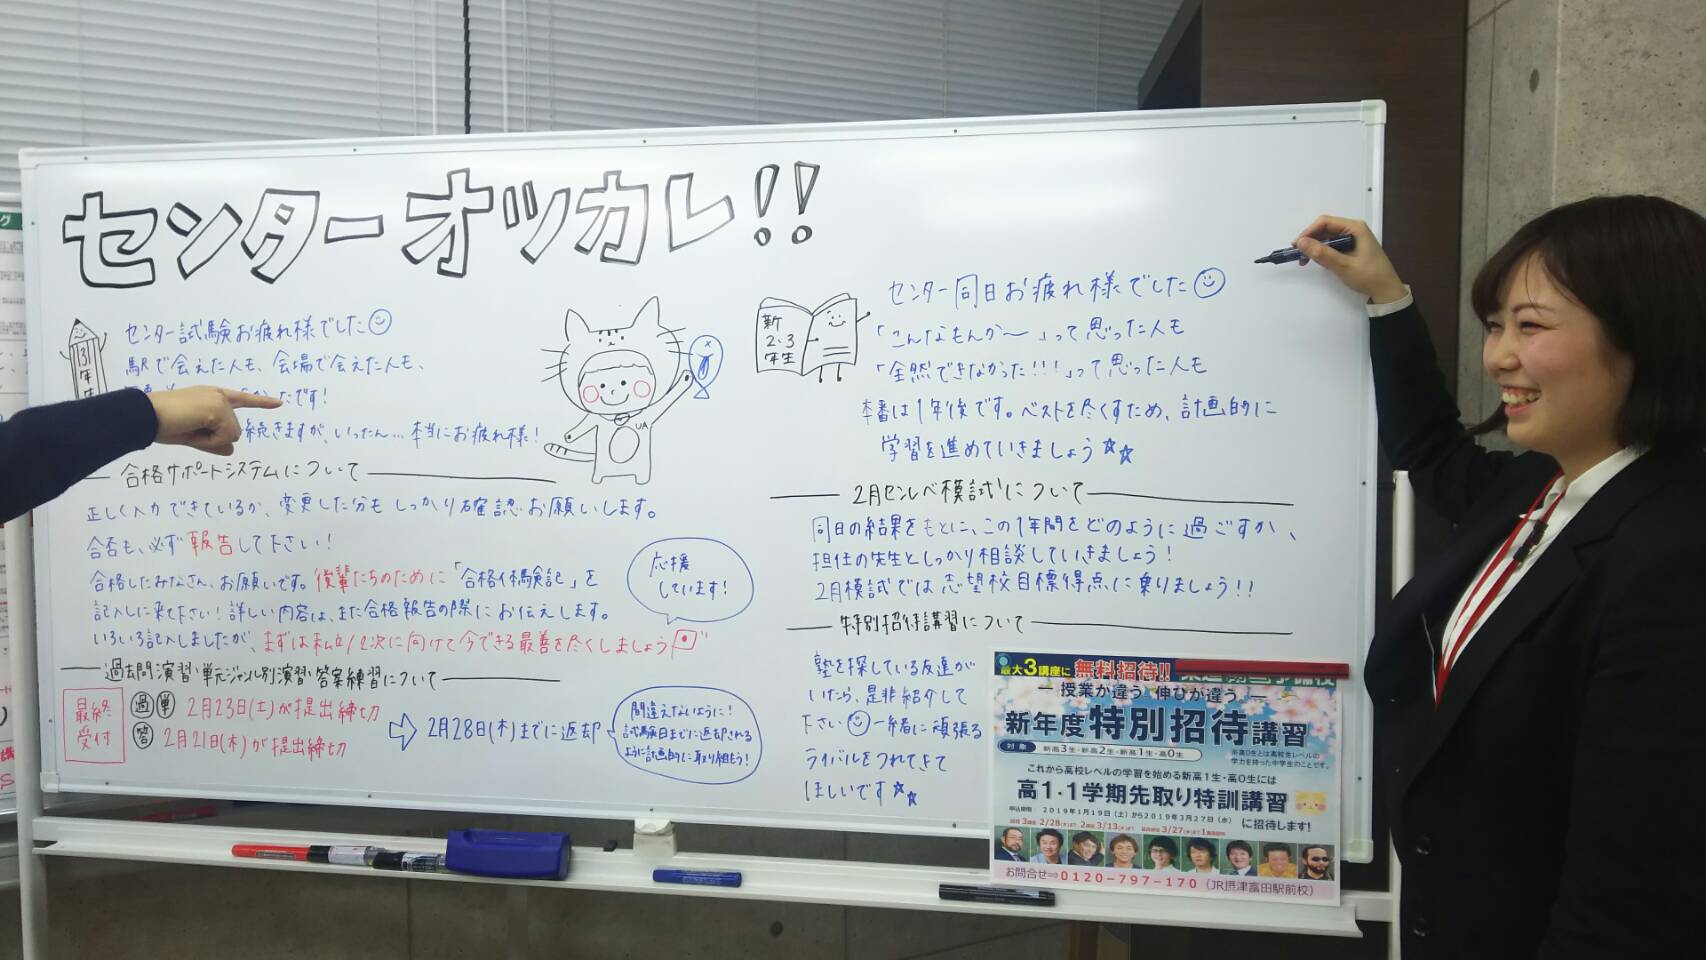 センターオツカレ!!
3年生
センター試験お疲れ様でした
駅で会えた人も、会場で会えた人も、
です!
続きますが、いったん…本当にお疲れ様!
UA
合格サポートシステムについて
正しく入力できているか、変更した分もしっかり確認お願いします。
合否も、必ず報告して下さい!
合格したみなさん、お願いです。後輩たちのために「合格体験記」を
記入しに来て下さい!詳しい内容は、また合格報告の際にお伝えします。
いろいろ記入しましたが、まずは私立/2次に向けて今できる最善を尽くしましょう
応援
しています!
過去問演習・単元ジャンル別演習・答案練習について
最終
受付
過 単 2月23日(土)が提出締切
答 2月21日(木)が提出締切
2月28日(木)までに返却
間違えないように!
試験日までに返却される
ように計画的に取り組もう!
新
2・3
年生
センター同日お疲れ様でした
「こんなもんか〜」って思った人も
「全然できなかった!!!」って思った人も
本番は1年後です。ベストを尽くすため、計画的に
学習を進めていきましょう☆☆
2月センレベ模試について
同日の結果をもとに、この1年間をどのように過ごすか、
担任の先生としっかり相談していきましょう!
2月模試では志望校目標得点に乗りましょう!!
特別招待講習について
塾を探している友達が
いたら、是非紹介して
下さい 一緒に頑張る
ライバルをつれてきて
ほしいです☆☆
最大3講座に 無料招待!!
授業が違う 伸びが違う
新年度特別招待講習
対象 新高3生・新高2生・新高1生・高0生
※高0生とは高校生レベルの
学力を持った中学生のことです。
これから高校レベルの学習を始める新高1生・高0生には
高1・1学期先取り特訓講習
に招待します!
申込期間 2019年1月19日(土)から2019年3月27日(水)
2/28 3/13 3/27
お問合せ⇒0120-797-170(JR摂津富田駅前校)